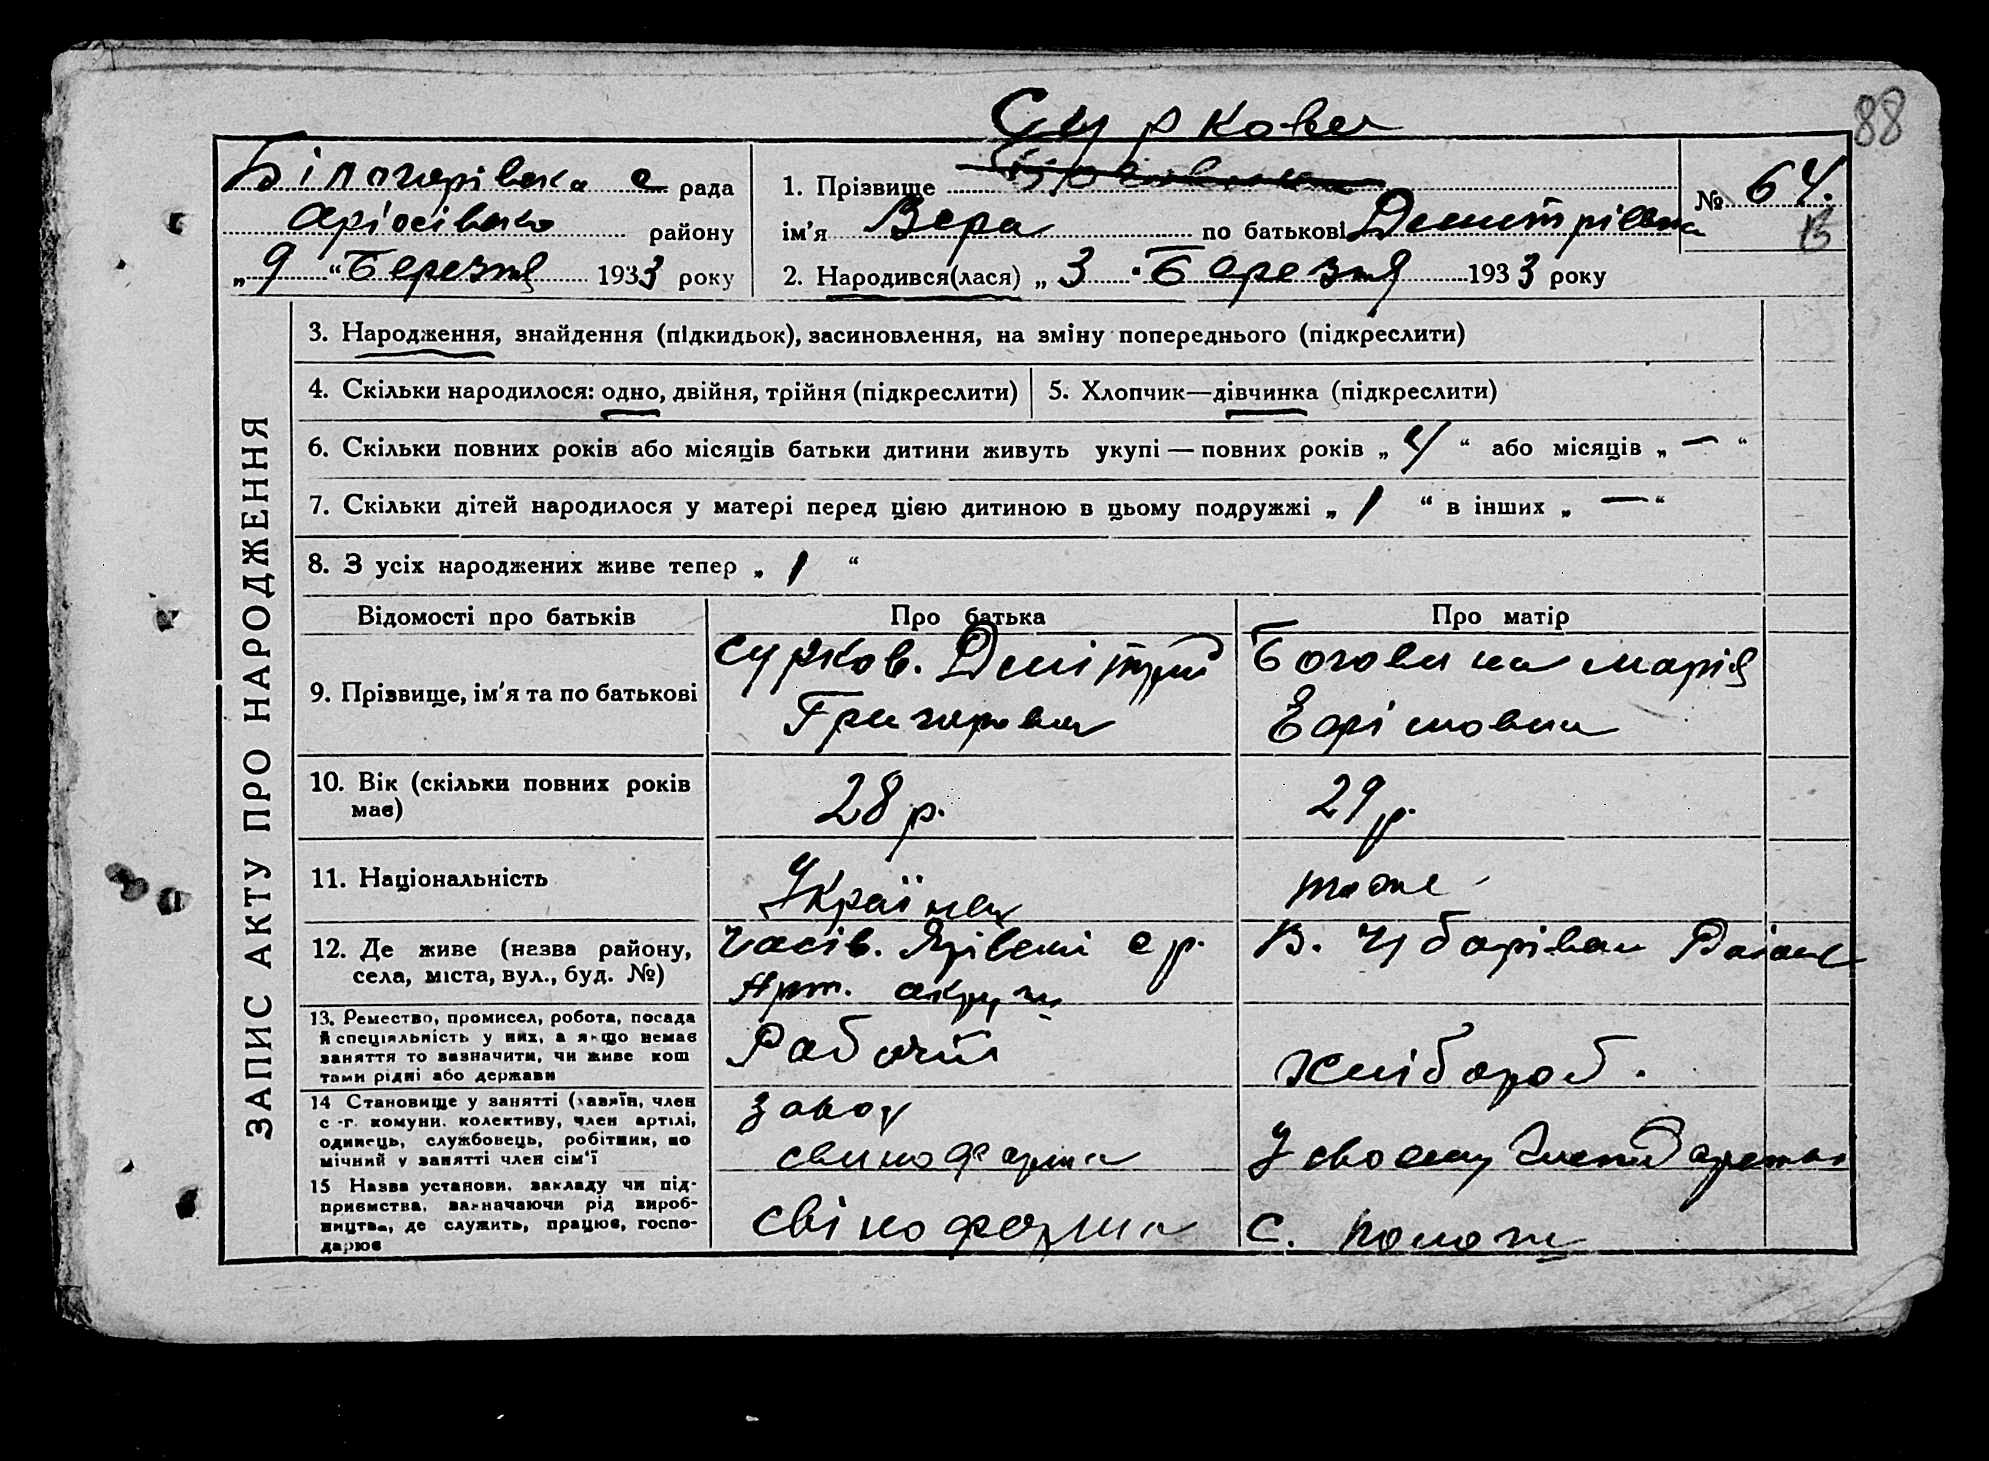 88
Суркова
Білогорівська с рада
району
„ 9 “ Березня 1933 року
1. Прізвище
ім'я Вера по батькові Дмитрієвна
2. Народився(лася) „ 3 “ Березня 1933 року
№ 64.
В
ЗАПИС АКТУ ПРО НАРОДЖЕННЯ
3. Народження, знайдення (підкидьок), засиновлення, на зміну попереднього (підкреслити)
4. Скільки народилося: одно, двійня, трійня (підкреслити)
5. Хлопчик—дівчинка (підкреслити)
6. Скільки повних років або місяців батьки дитини живуть укупі — повних років „ 4 “ або місяців „ — “
7. Скільки дітей народилося у матері перед цією дитиною в цьому подружжі „ 1 “ в інших „ — “
8. З усіх народжених живе тепер „ 1 “
Відомості про батьків
Про батька
Про матір
9. Прізвище, ім'я та по батькові
Сурков. Дмітрий
Григорович
Боговина Марія
Ефімовна
10. Вік (скільки повних років
має)
28 р.
29 р.
11. Національність
Українец
тоже
12. Де живе (назва району,
села, міста, вул., буд. №)
Часів. Яр с р.
Арт. округи
В.
13. Ремество, промисел, робота, посада
й спеціяльність у них, а якщо немає
заняття то зазначити, чи живе кош
тами рідні або держави
Рабочій
Хлібороб.
14 Становище у занятті (хазяїн, член
с -г. комуни, колективу, член артілі,
одинець, службовець, робітник, по
мічний у занятті член сім'ї
завод
свиноферма
У своему господарстві
15 Назва установи, закладу чи під-
приємства, зазначаючи рід вироб-
ництва, де служить, працює, госпо-
дарює
свіноферма
С.